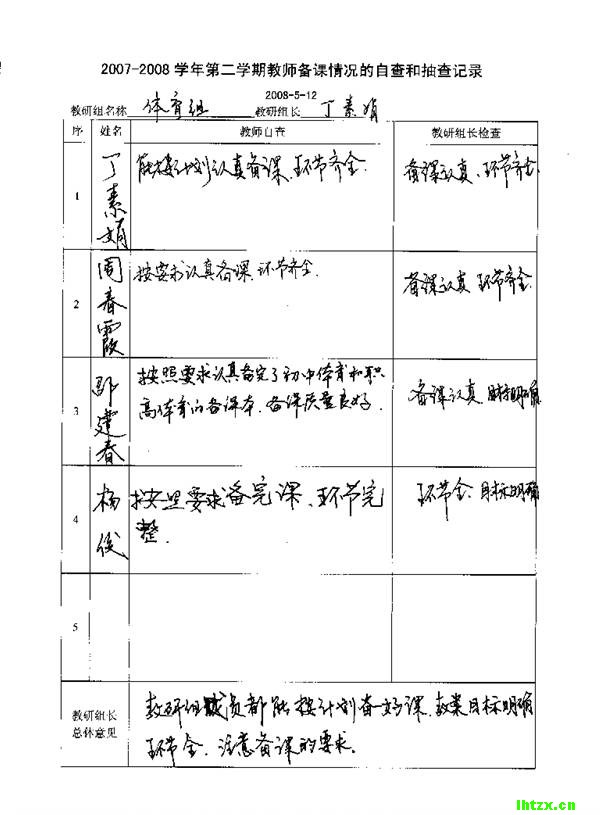 2007-2008 学年第二学期教师备课情况的自查和抽查记录
2008-5-12
教研组名称 体育组 教研组长 丁素娟
序 姓名 教师自查 教研组长检查
1 丁素娟 能按计划认真备课、环节齐全. 备课认真、环节齐全
2 周春霞 按要求认真备课、环节齐全. 备课认真 环节齐全.
3 邵建春 按照要求认真备完了初中体育和职 备课认真、目标明确
高体育的备课本、备课质量良好.
4 杨俊 按照要求备完课、环节完 环节全、目标明确
整.
5
教研组长
总体意见
教研组成员都能按计划备好课、教案目标明确
环节全、注意备课的要求。
lhtzx.cn